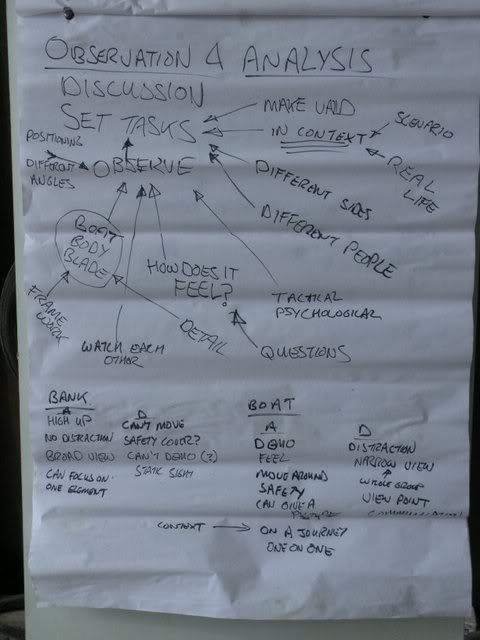 OBSERVATION & ANALYSIS
DISCUSSION
SET TASKS
MAKE VALID
IN CONTEXT
SCENARIO
REAL LIFE
POSITIONING
DIFFERENT ANGLES
OBSERVE
DIFFERENT SIDES
DIFFERENT PEOPLE
BOAT
BODY
BLADE
HOW DOES IT
FEEL?
TACTICAL
PSYCHOLOGICAL
FRAME WORK
WATCH EACH
OTHER
DETAIL
QUESTIONS
BANK
A
HIGH UP
NO DISTRACTION
BROAD VIEW
CAN FOCUS ON
ONE ELEMENT
D
CAN'T MOVE
SAFETY COVER?
CAN'T DEMO (?)
STATIC SIGHT
BOAT
A
DEMO
FEEL
MOVE AROUND
SAFETY
CAN GIVE A
PICTURE
D
DISTRACTION
NARROW VIEW
WHOLE GROUP
VIEW POINT
COMMUNICATION
CONTEXT
ON A JOURNEY
ONE ON ONE